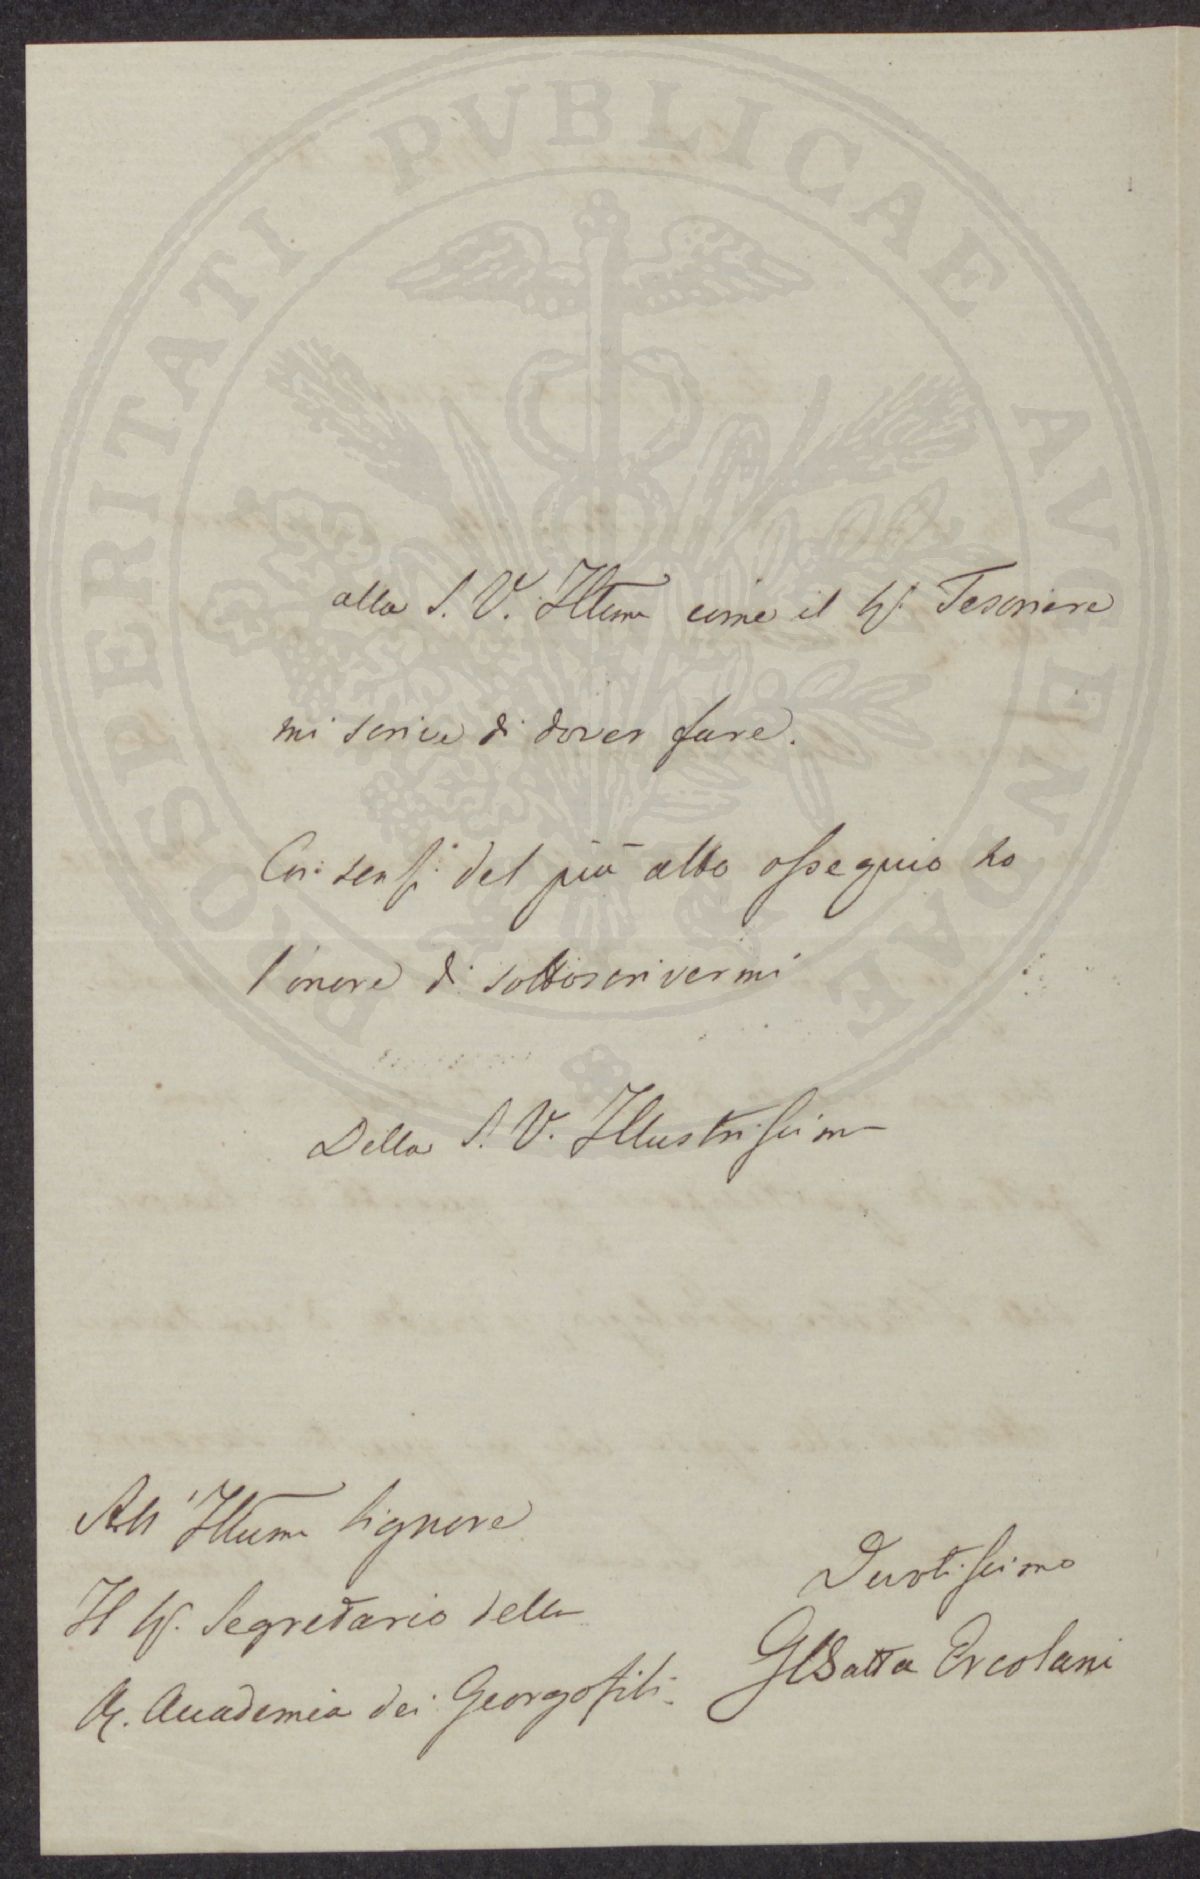 PROSPERITATI PVBLICAE AVGENDAE
alla S. V. Illma come il Sg. Tesoriere
mi scrive di dover fare.
Coi sensi del più alto ossequio ho
l'onore di sottoscrivermi
Della S. V. Illustrissima
All' Illumo Signore
Il Sg. Segretario della
R. Accademia dei Georgofili.
Devotissimo
GBatta Ercolani